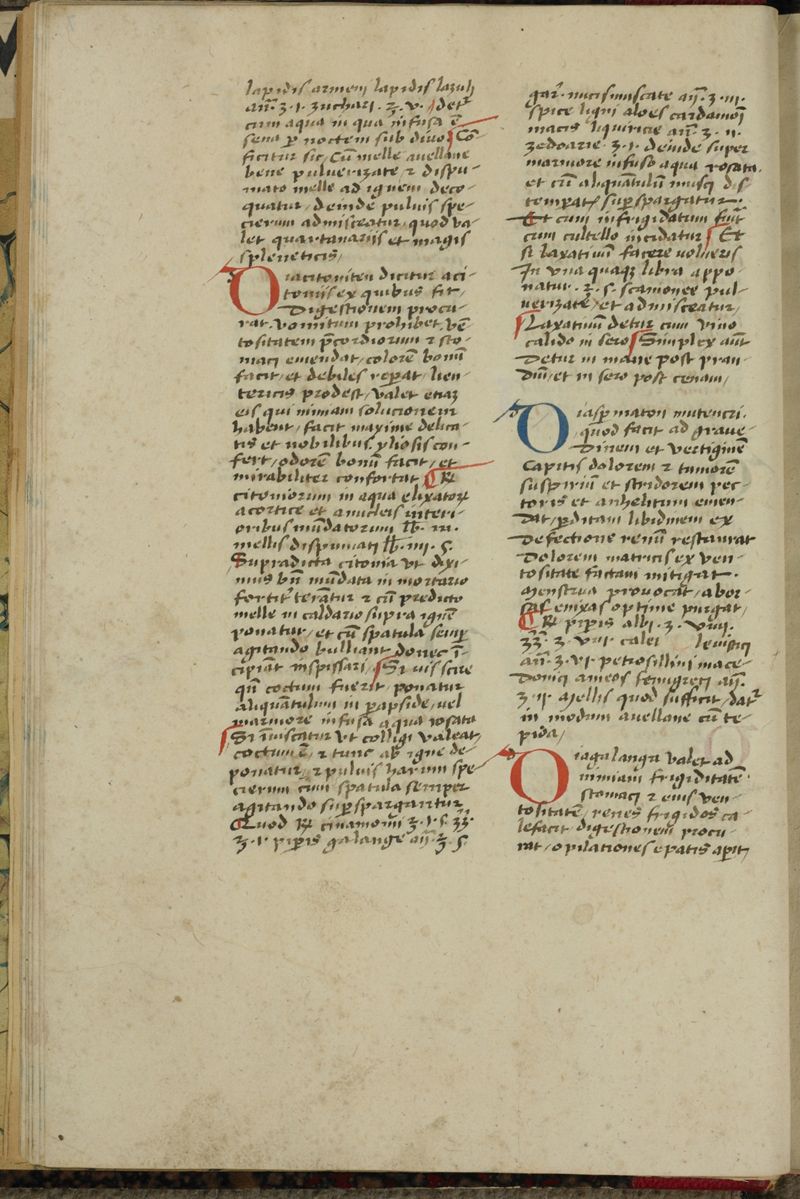 lapidis armenj lapidis lazulj
añ. ʒ. i. zuchari. ℥. v. / det͛
cum aqua in qua infusa ē
sena p̱ noctem sub diuo Cō-
ficitur sic, Cū melle auellane
bene puluerizate ⁊ dispu-
mato melle ad ignem deco-
quatur, deinde puluis spe-
cierum admisceatur, quod va-
let quartanarijs et magis
spleneticis,
Diacitoniten dicitur a ci-
tonijs ex quibus fit,
Digestionem procu-
rat, vomitum prohibet, vē-
tositatem p̄cordiorum ⁊ sto-
maci emendat, colorē bonū
facit, et debiles rep̱at, lien-
tericis prodest, valet etiaʒ
eis qui nimiam solucionem
habent, facit maxime delica-
tis et nobilibus, yliosis con-
fert, odorē bonū facit, et
mirabiliter confortat, ℞
citoniorum in aqua elixatoꝝ
a cortice et a nucleis interi-
oribus mūdatorum lb. iii.
mellis dispumati lb. iiij. s.
Supradicta citonia vt dixi-
mus bn̄ mūdata in mortario
fortit͛ terātur ⁊ cū predicto
melle in caldario supra ignē
ponatur, et cū spatula semp̱
agitando bulliant donec ī-
cipiāt inspissari, Si vis scire
qn̄ coctum fuerit, ponatur
aliquātulum in p̱apside, vel
marmore infusa aqua rosata
Si īuiscatur vt colligi valeat,
coctum ē, ⁊ tunc ab igne de-
ponatur, ⁊ puluis harum spe-
cierum cum spatula semper
agitando sup̱spargantur
Quod ℞ cinamomi ʒ. i. s. ʒʒ.
ʒ. i. pip̱is galange añ. ʒ. s.
gar͛. nucis muscate añ. ʒ. iii.
spice ligni aloes cardamoī
macis liquiricie añ. ʒ. ii.
zedoarie. ʒ. i. deinde super
marmore infuso aqua rosata.
et cū aliquātulū musci d. s
temp̱at͛ sup̱spargatur.
Et cum infrigidatum fuīt
cum cultello incidatur Et
si laxatiuū facere volueris
In vna quaqʒ libra appo-
natur. ℥. s. scamonee pul-
uerizate, et admisceatur,
Laxatiuū detur cum vino
calido in sero Simplex aūt
Detur in mane post pran-
diū, et in sero post cenam,
Diasp̱maton mutencri.
quod facit ad graue-
dinem et vertiginē
Capitis dolorem ⁊ tumorē
suspiriū et stridorem pec-
toris et anhelitum emen-
dat, p̱ditam libidinem ex
defectione renū restaurat
Dolorem matricis ex ven-
tositate factam mitigat.
Menstrua prouocat, abor-
sas enixas optime purgat,
℞ pip̱is albi. ʒ. viiij.
ʒʒ. ʒ. viij calei levistici
añ. ʒ. vi. petrosillini mace-
donici ameos fenugreci añ.
ʒ. ij. Mellis quod sufficit, dat͛
in modum auellane cū te-
pida,
Diagalanga valet ad
nimiam frigiditatē
stomaci ⁊ eius ven-
tositatē, renes frigidos ca-
lefacit digestionem procu-
rat, opilationes epatis ap̱it,